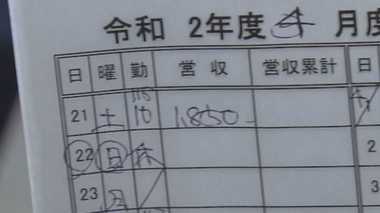 令和 2年度 4 月度
日 曜 勤 営収 営収累計 日
21 土 1,850-
22 日 休 2
23 月 3